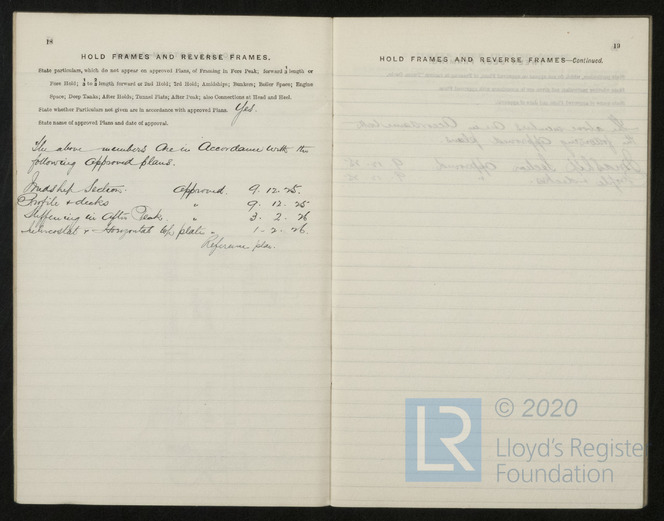 18
HOLD FRAMES AND REVERSE FRAMES.
State particulars, which do not appear on approved Plans, of Framing in Fore Peak; forward ¼ length or
Fore Hold; ¼ to ⅗ length forward at 2nd Hold; 3rd Hold; Amidships; Bunkers; Boiler Space; Engine
Space; Deep Tanks; After Holds; Tunnel Flats; After Peak; also Connections at Head and Heel.
State whether Particulars not given are in accordance with approved Plans. Yes.
State name of approved Plans and date of approval.
The above members are in accordance with the
following approved plans.
Midship Section. approved. 9. 12. 25.
Profile & decks " 9. 12. 25
Stiffening in After Peak. " 3. 2. 26
Intercostal & Horizontal top plate " 1. 2. 26.
Reference plan.
19
HOLD FRAMES AND REVERSE FRAMES—Continued.
© 2020
LR
Lloyd's Register
Foundation